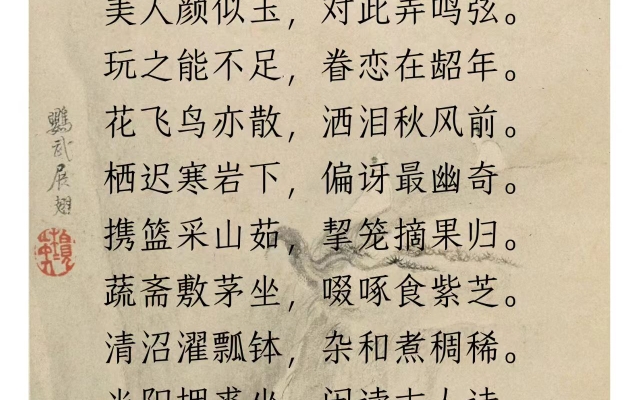 美人颜似玉，对此弄鸣弦。
玩之能不足，眷恋在龆年。
花飞鸟亦散，洒泪秋风前。
栖迟寒岩下，偏讶最幽奇。
携篮采山茹，挈笼摘果归。
蔬斋敷茅坐，啜啄食紫芝。
清沼濯瓢钵，杂和煮稠稀。
当阳拥裘坐，闲读古人诗
鸚武展翅